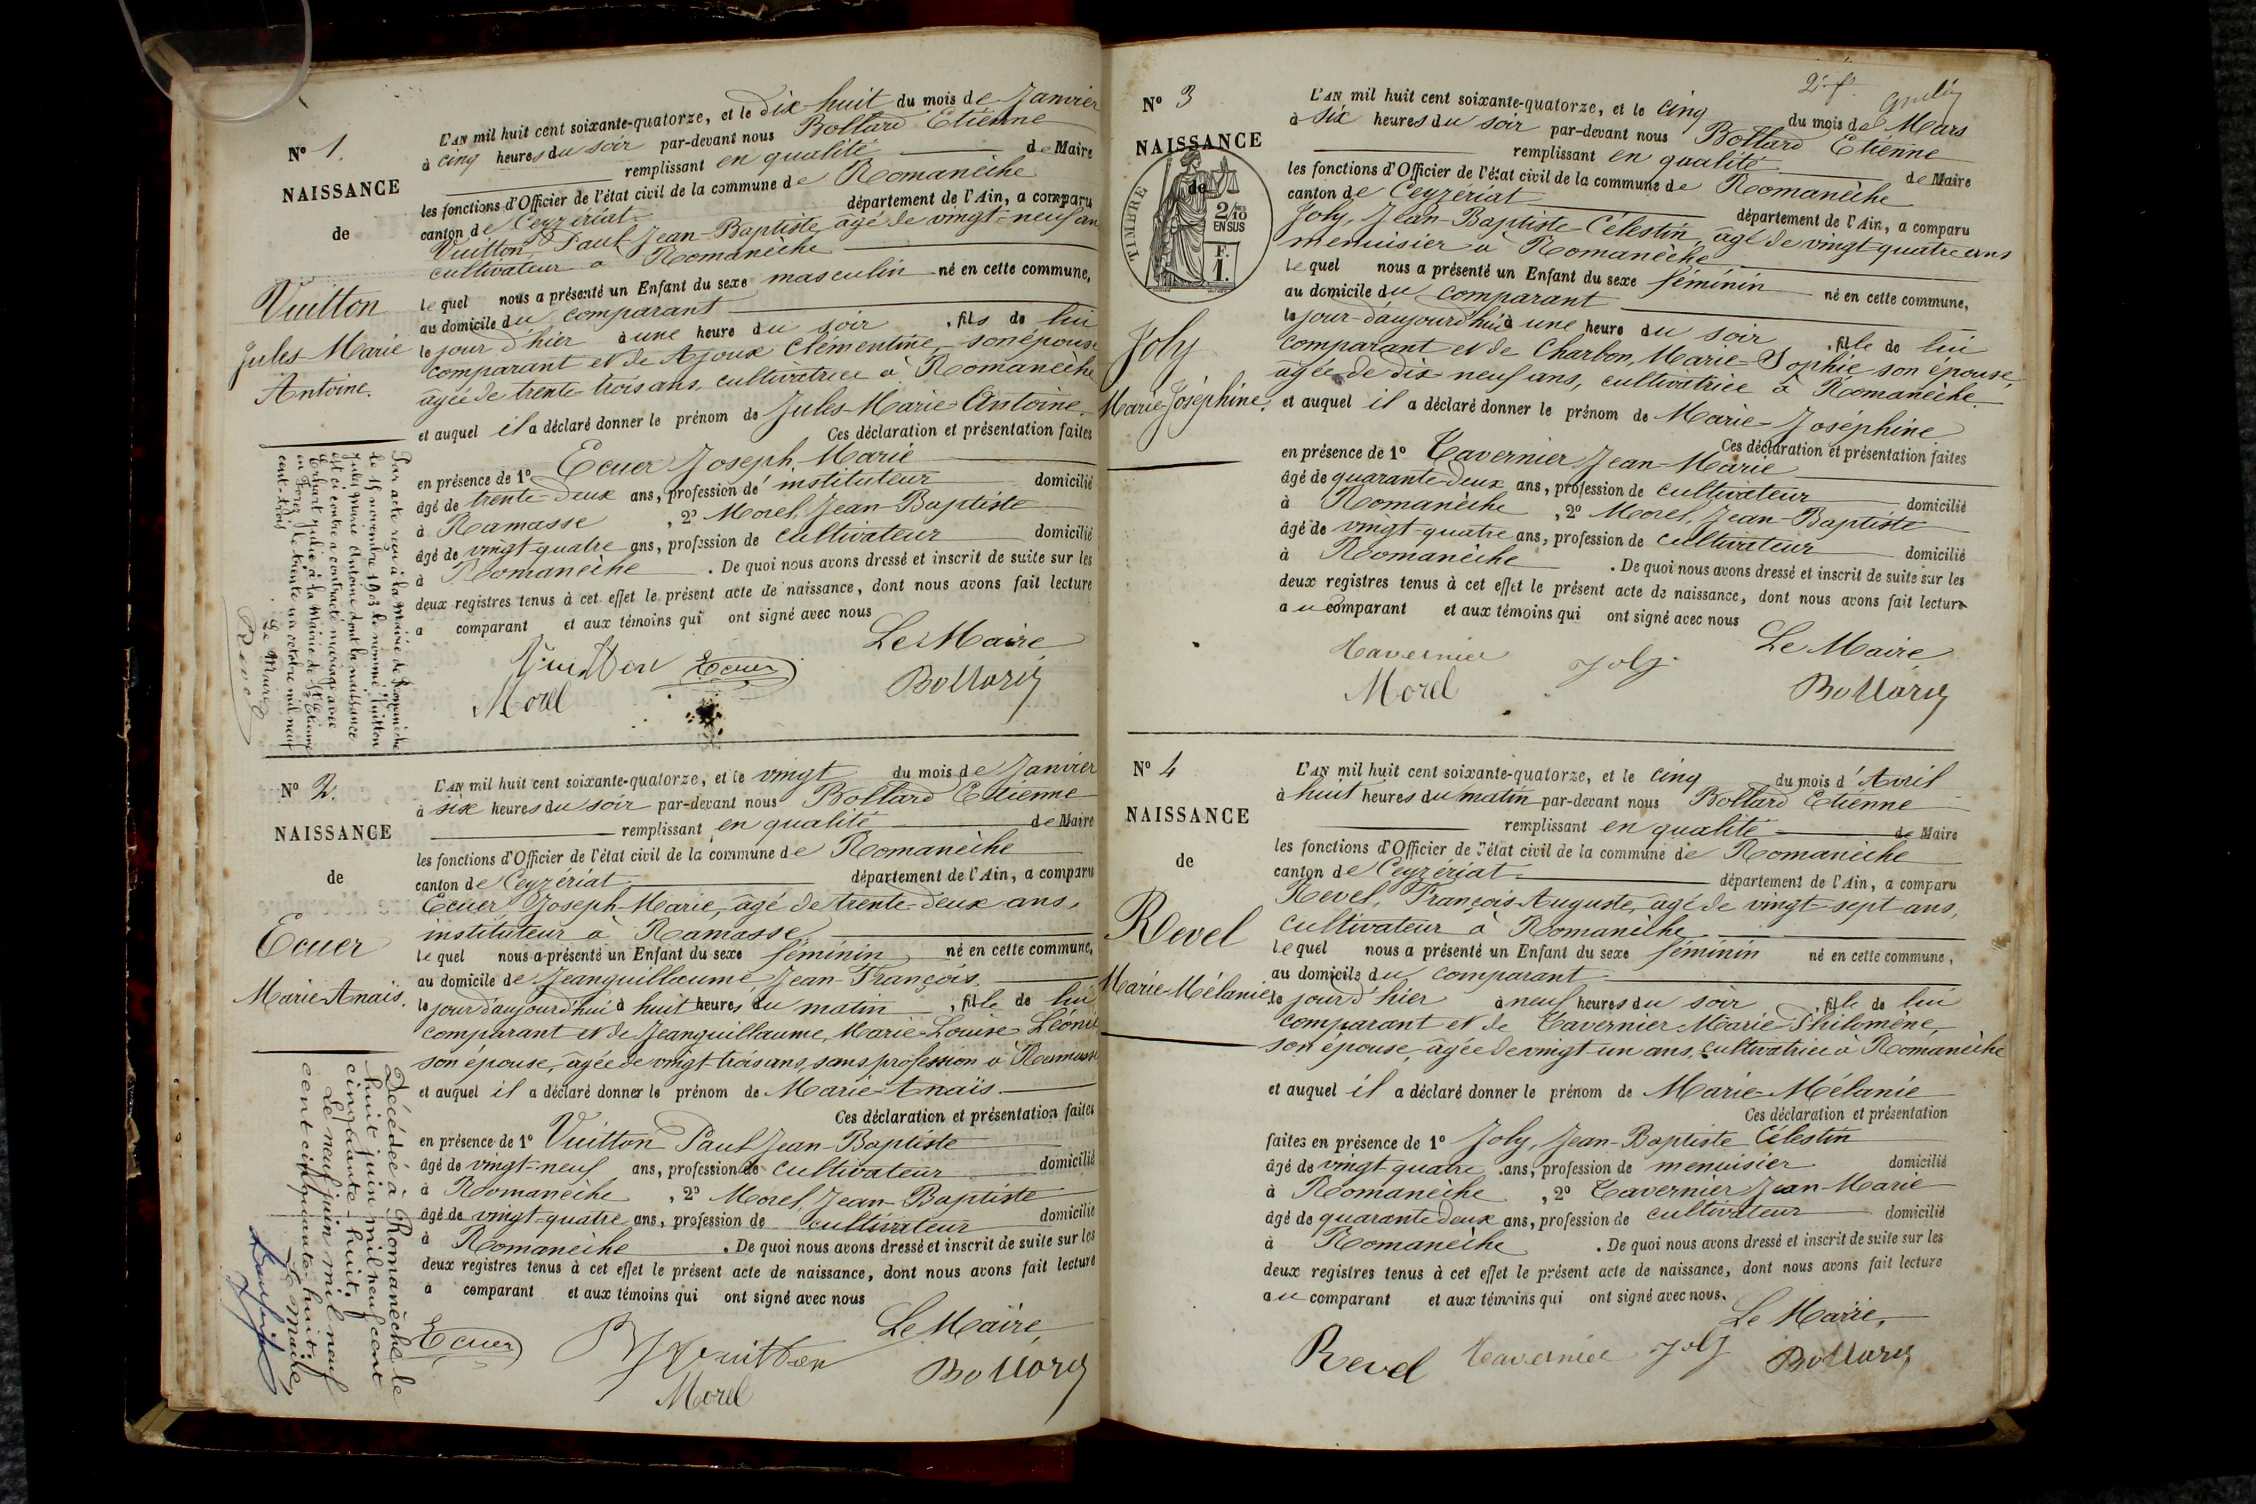 N° 1.
NAISSANCE
de
Vuitton
Jules-Marie
Antoine.
L'AN mil huit cent soixante-quatorze, et le dix-huit du mois de Janvier
à cinq heures du soir par-devant nous Bollard Etienne
remplissant en qualité de Maire
les fonctions d'Officier de l'état civil de la commune de Romanèche
canton de Ceyzériat département de l'Ain, a comparu
Vuitton, Paul Jean-Baptiste, âgé de vingt-neuf ans
cultivateur à Romanèche
lequel nous a présenté un Enfant du sexe masculin né en cette commune,
au domicile du comparant
le jour d'hier à une heure du soir, fils de lui
comparant et de Ajoux Clémentine, son épouse
agée de trente-trois ans, cultivatrice à Romanèche
et auquel il a déclaré donner le prénom de Jules-Marie Antoine.
Ces déclaration et présentation faites
en présence de 1° Ecuer Joseph Marie
âgé de trente-deux ans, profession de instituteur domicilié
à Ramasse, 2° Morel, Jean-Baptiste
âgé de vingt-quatre ans, profession de cultivateur domicilié
à Romanèche. De quoi nous avons dressé et inscrit de suite sur les
deux registres tenus à cet effet le présent acte de naissance, dont nous avons fait lecture
a comparant et aux témoins qui ont signé avec nous
Le Maire
Vuitton Ecuer
Morel Bollard
Par acte reçu à la Mairie de Romanèche
le 15 novembre 1903 le nommé Vuitton
Jules Marie Antoine dont la naissance
est ci contre a contracté mariage avec
julie à la Mairie de St Etienne
le trente un octobre mil neuf
cent-trois
Le Maire
Revel
N° 2.
NAISSANCE
de
Ecuer
Marie Anaïs.
L'AN mil huit cent soixante-quatorze, et le vingt du mois de Janvier
à six heures du soir par-devant nous Bollard Etienne
remplissant en qualité de Maire
les fonctions d'Officier de l'état civil de la commune de Romanèche
canton de Ceyzériat département de l'Ain, a comparu
Ecuer, Joseph-Marie, âgé de trente-deux ans,
instituteur à Ramasse,
lequel nous a présenté un Enfant du sexe féminin né en cette commune,
au domicile de Jeanguillaume, Jean-François,
le jour d'aujourd'hui à huit heures du matin, fille de lui
comparant et de Jeanguillaume, Marie-Louise Léonie
son épouse, âgée de vingt-trois ans, sans profession à Ramasse
et auquel il a déclaré donner le prénom de Marie-Anaïs.
Ces déclaration et présentation faites
en présence de 1° Vuitton Paul Jean-Baptiste
âgé de vingt-neuf ans, profession de cultivateur domicilié
à Romanèche, 2° Morel, Jean-Baptiste
âgé de vingt-quatre ans, profession de cultivateur domicilié
à Romanèche. De quoi nous avons dressé et inscrit de suite sur les
deux registres tenus à cet effet le présent acte de naissance, dont nous avons fait lecture
a comparant et aux témoins qui ont signé avec nous
Le Maire,
Ecuer Vuitton Bollard
Morel
Décédée à Romanèche le
huit juin mil neuf cent
cinquante-huit.
Le neuf juin mil neuf
cent cinquante-huit.
Le Maire,
2e f.
N° 3
NAISSANCE
de
TIMBRE
2/10 EN SUS
F. 1.
Joly
Marie-Joséphine.
L'AN mil huit cent soixante-quatorze, et le cinq du mois de Mars
à six heures du soir par-devant nous Bollard Etienne
remplissant en qualité de Maire
les fonctions d'Officier de l'état civil de la commune de Romanèche
canton de Ceyzériat département de l'Ain, a comparu
Joly, Jean-Baptiste-Célestin, âgé de vingt-quatre ans
menuisier à Romanèche
lequel nous a présenté un Enfant du sexe féminin né en cette commune,
au domicile du comparant
le jour-d'aujourd'hui à une heure du soir, fille de lui
comparant et de Charbon, Marie-Sophie son épouse,
agée de dix-neuf ans, cultivatrice à Romanèche.
et auquel il a déclaré donner le prénom de Marie-Joséphine
Ces déclaration et présentation faites
en présence de 1° Tavernier Jean-Marie
âgé de quarante-deux ans, profession de cultivateur domicilié
à Romanèche, 2° Morel, Jean-Baptiste
âgé de vingt-quatre ans, profession de cultivateur domicilié
à Romanèche. De quoi nous avons dressé et inscrit de suite sur les
deux registres tenus à cet effet le présent acte de naissance, dont nous avons fait lecture
au comparant et aux témoins qui ont signé avec nous
Le Maire
Tavernier Joly
Morel Bollard
N° 4
NAISSANCE
de
Revel
Marie-Mélanie
L'AN mil huit cent soixante-quatorze, et le cinq du mois d'Avril
à huit heures du matin par-devant nous Bollard Etienne
remplissant en qualité de Maire
les fonctions d'Officier de l'état civil de la commune de Romanèche
canton de Ceyzériat département de l'Ain, a comparu
Revel, François-Auguste, agé de vingt-sept ans,
cultivateur à Romanèche
lequel nous a présenté un Enfant du sexe féminin né en cette commune,
au domicile du comparant
le jour d'hier à neuf heures du soir, fille de lui
comparant et de Tavernier Marie-Philomène,
son épouse, âgée de vingt-un ans, cultivatrice à Romanèche
et auquel il a déclaré donner le prénom de Marie-Mélanie
Ces déclaration et présentation
faites en présence de 1° Joly, Jean-Baptiste Célestin
âgé de vingt quatre ans, profession de menuisier domicilié
à Romanèche, 2° Tavernier Jean-Marie
âgé de quarante deux ans, profession de cultivateur domicilié
à Romanèche. De quoi nous avons dressé et inscrit de suite sur les
deux registres tenus à cet effet le présent acte de naissance, dont nous avons fait lecture
au comparant et aux témoins qui ont signé avec nous.
Le Maire,
Revel Tavernier Joly Bollard